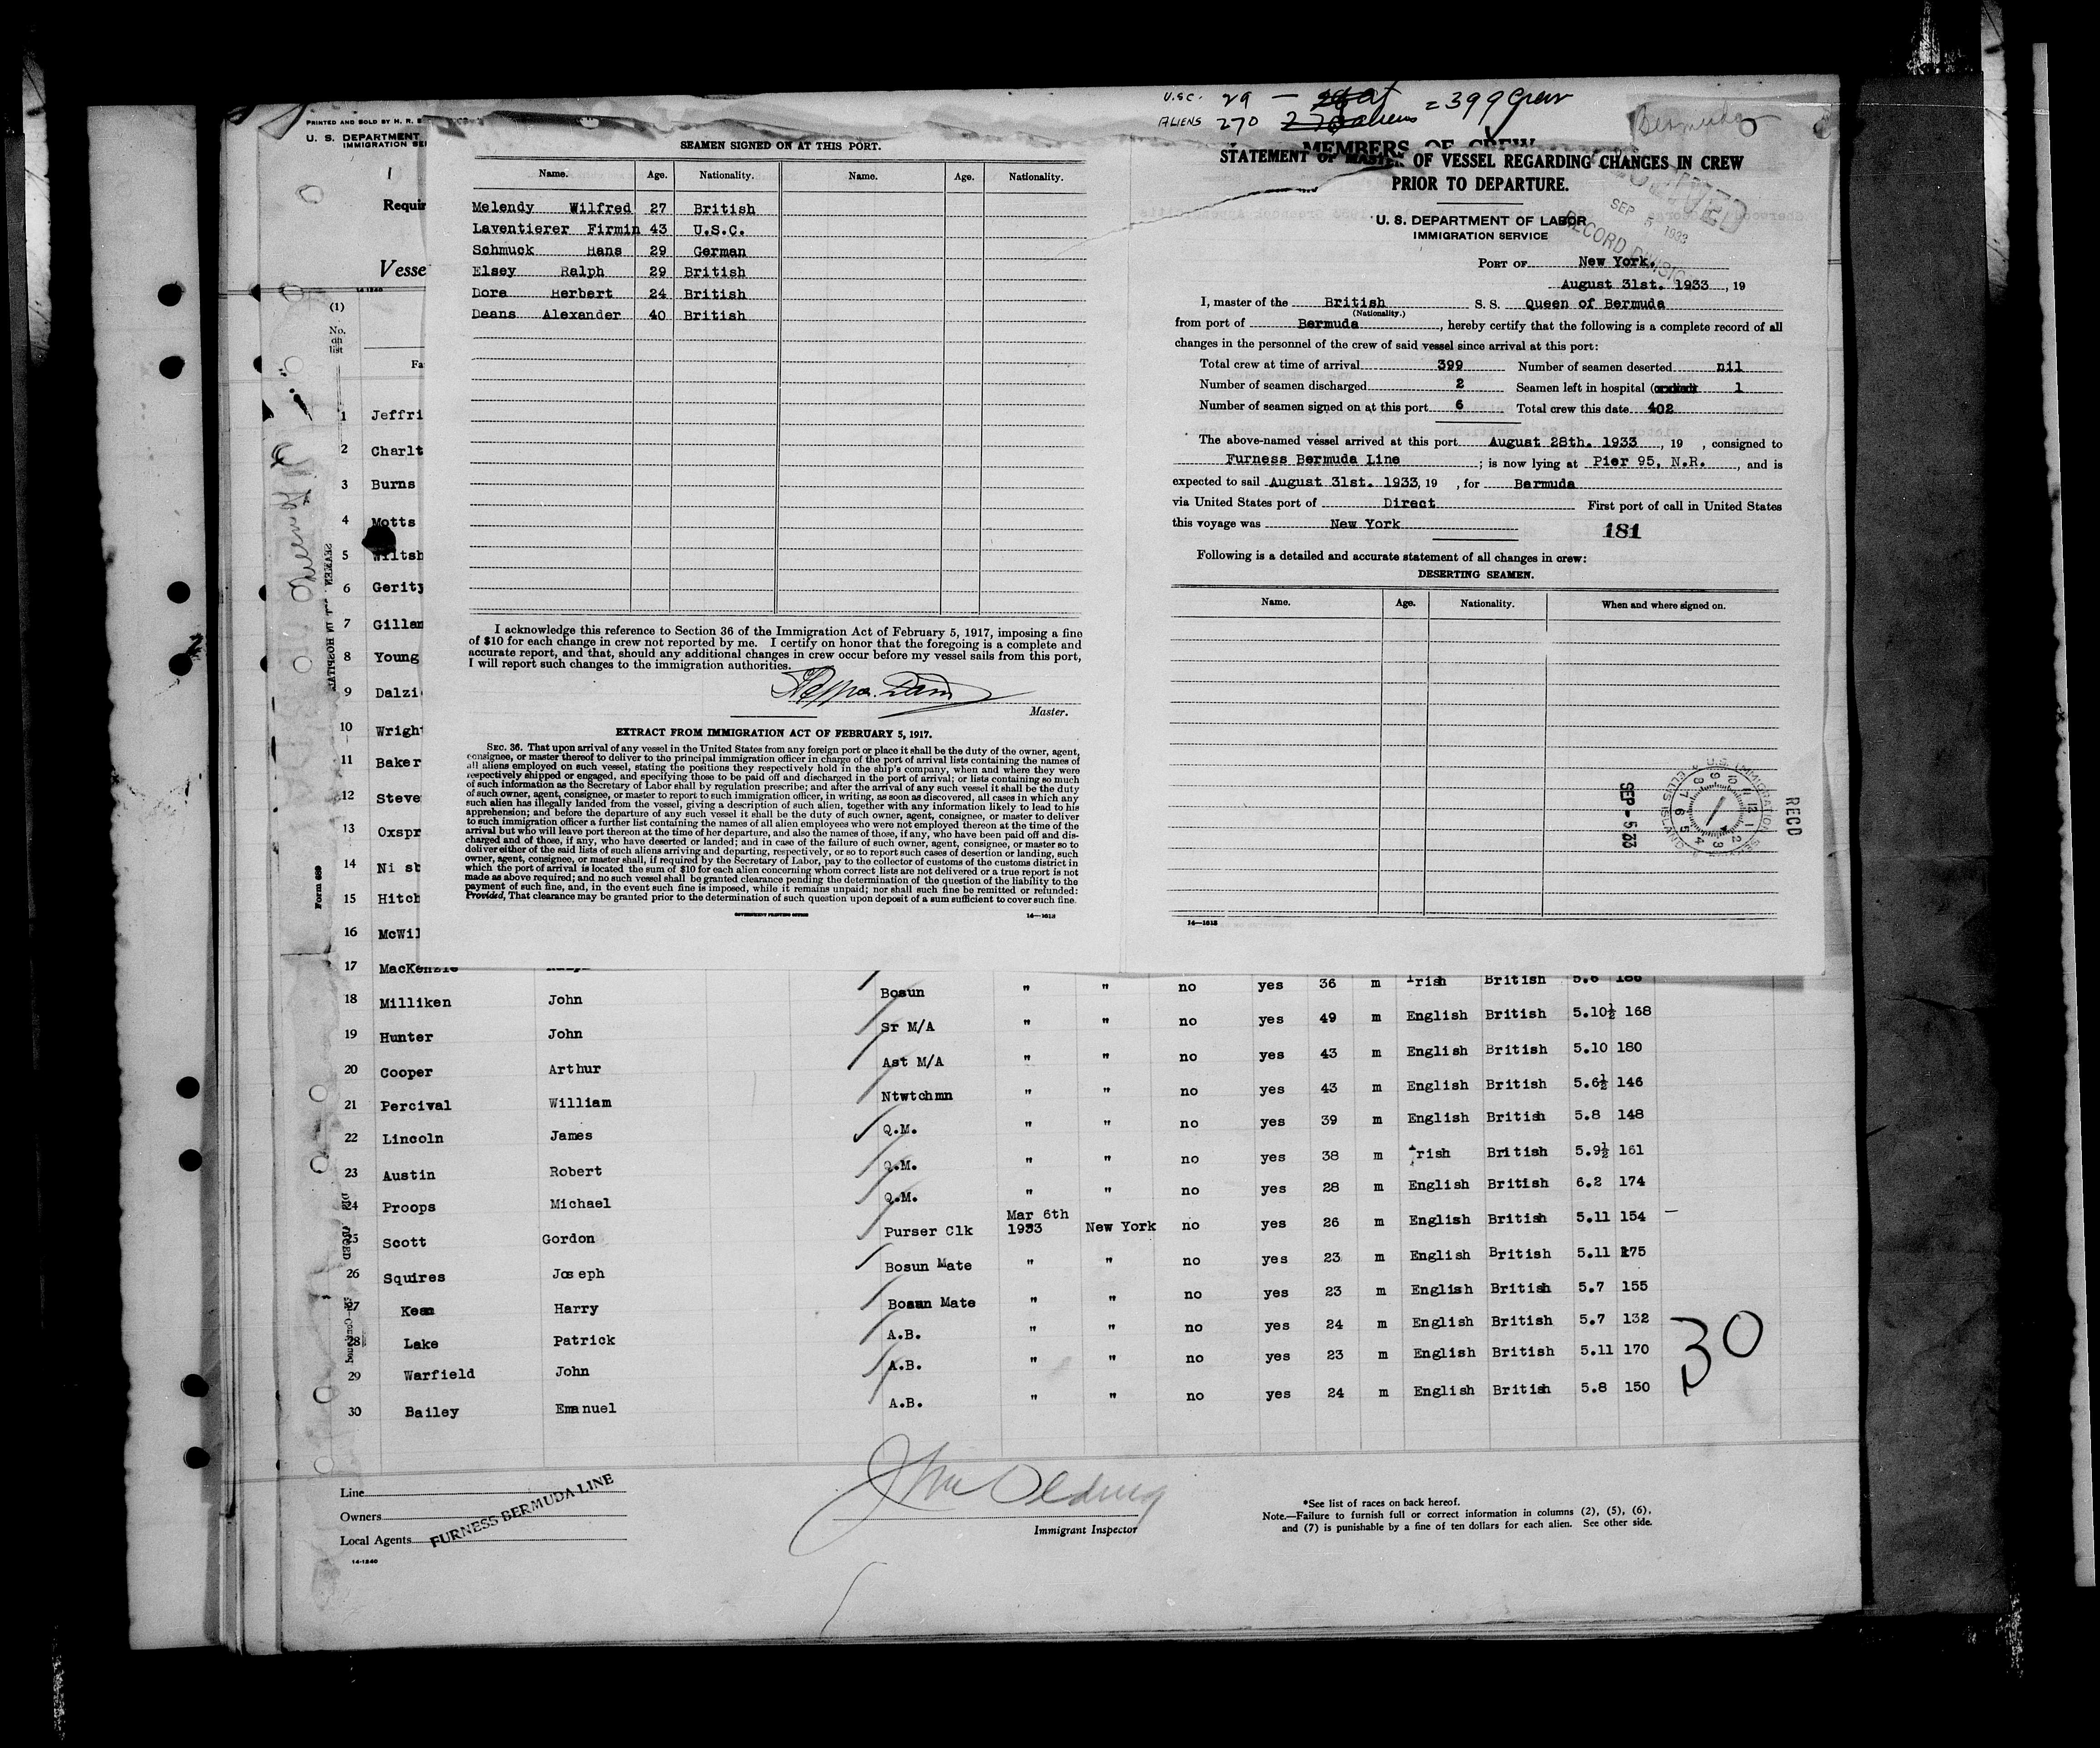 U.S.C. 29
ALIENS 270
= 399 Crew
Bermuda
PRINTED AND SOLD BY H. R.
U. S. DEPARTMENT
IMMIGRATION
Requir
Vesse
14-1240
(1)
No. on list
Fa
SEAMEN SIGNED ON AT THIS PORT.
Name. Age. Nationality. Name. Age. Nationality.
Melendy Wilfred 27 British
Laventierer Firmin 43 U.S.C.
Schmuck Hans 29 German
Elsey Ralph 29 British
Dore Herbert 24 British
Deans Alexander 40 British
I acknowledge this reference to Section 36 of the Immigration Act of February 5, 1917, imposing a fine
of $10 for each change in crew not reported by me. I certify on honor that the foregoing is a complete and
accurate report, and that, should any additional changes in crew occur before my vessel sails from this port,
I will report such changes to the immigration authorities.
Master.
EXTRACT FROM IMMIGRATION ACT OF FEBRUARY 5, 1917.
SEC. 36. That upon arrival of any vessel in the United States from any foreign port or place it shall be the duty of the owner, agent,
consignee, or master thereof to deliver to the principal immigration officer in charge of the port of arrival lists containing the names of
all aliens employed on such vessel, stating the positions they respectively hold in the ship's company, when and where they were
respectively shipped or engaged, and specifying those to be paid off and discharged in the port of arrival; or lists containing so much
of such information as the Secretary of Labor shall by regulation prescribe; and after the arrival of any such vessel it shall be the duty
of such owner, agent, consignee, or master to report to such immigration officer, in writing, as soon as discovered, all cases in which any
such alien has illegally landed from the vessel, giving a description of such alien, together with any information likely to lead to his
apprehension; and before the departure of any such vessel it shall be the duty of such owner, agent, consignee, or master to deliver
to such immigration officer a further list containing the names of all alien employees who were not employed thereon at the time of the
arrival but who will leave port thereon at the time of her departure, and also the names of those, if any, who have been paid off and dis-
charged and of those, if any, who have deserted or landed; and in case of the failure of such owner, agent, consignee, or master so to
deliver either of the said lists of such aliens arriving and departing, respectively, or so to report such cases of desertion or landing, such
owner, agent, consignee, or master shall, if required by the Secretary of Labor, pay to the collector of customs of the customs district in
which the port of arrival is located the sum of $10 for each alien concerning whom correct lists are not delivered or a true report is not
made as above required; and no such vessel shall be granted clearance pending the determination of the question of the liability to the
payment of such fine, and, in the event such fine is imposed, while it remains unpaid; nor shall such fine be remitted or refunded:
Provided, That clearance may be granted prior to the determination of such question upon deposit of a sum sufficient to cover such fine.
GOVERNMENT PRINTING OFFICE 14—1613
MEMBERS OF CREW
STATEMENT OF MASTER OF VESSEL REGARDING CHANGES IN CREW
PRIOR TO DEPARTURE.
U. S. DEPARTMENT OF LABOR
IMMIGRATION SERVICE
RECEIVED
SEP 5 1933
RECORD DIVISION
PORT OF New York.
August 31st. 1933, 19
I, master of the British S. S. Queen of Bermuda
(Nationality.)
from port of Bermuda, hereby certify that the following is a complete record of all
changes in the personnel of the crew of said vessel since arrival at this port:
Total crew at time of arrival 399 Number of seamen deserted nil
Number of seamen discharged 2 Seamen left in hospital 1
Number of seamen signed on at this port 6 Total crew this date 402
The above-named vessel arrived at this port August 28th. 1933, 19 , consigned to
Furness Bermuda Line ; is now lying at Pier 95, N.R. , and is
expected to sail August 31st. 1933, 19 , for Bermuda
via United States port of Direct First port of call in United States
this voyage was New York
181
Following is a detailed and accurate statement of all changes in crew:
DESERTING SEAMEN.
Name. Age. Nationality. When and where signed on.
RECD
SEP - 5 33
U.S. IMMIGRATION SERVICE ELLIS ISLAND
14—1613
Form 689
1 Jeffri
2 Charlt
3 Burns
4 Motts
5 Wiltsh
6 Gerity
7 Gillan
8 Young
9 Dalzi
10 Wright
11 Baker
12 Steve
13 Oxspr
14 Ni sb
15 Hitch
16 McWil
17 MacKenzie
18 Milliken John Bosun " " no yes 36 m Irish British 5.6 186
19 Hunter John Sr M/A " " no yes 49 m English British 5.10½ 168
20 Cooper Arthur Ast M/A " " no yes 43 m English British 5.10 180
21 Percival William Ntwtchmn " " no yes 43 m English British 5.6½ 146
22 Lincoln James Q.M. " " no yes 39 m English British 5.8 148
23 Austin Robert Q.M. " " no yes 38 m Irish British 5.9½ 161
24 Proops Michael Q.M. " " no yes 28 m English British 6.2 174
25 Scott Gordon Purser Clk Mar 6th 1933 New York no yes 26 m English British 5.11 154
26 Squires Joseph Bosun Mate " " no yes 23 m English British 5.11 175
27 Kean Harry Bosun Mate " " no yes 23 m English British 5.7 155
28 Lake Patrick A.B. " " no yes 24 m English British 5.7 132
29 Warfield John A.B. " " no yes 23 m English British 5.11 170
30 Bailey Emanuel A.B. " " no yes 24 m English British 5.8 150
30
Line
Owners
Local Agents
FURNESS BERMUDA LINE
14-1240
Immigrant Inspector
*See list of races on back hereof.
Note.—Failure to furnish full or correct information in columns (2), (5), (6),
and (7) is punishable by a fine of ten dollars for each alien. See other side.